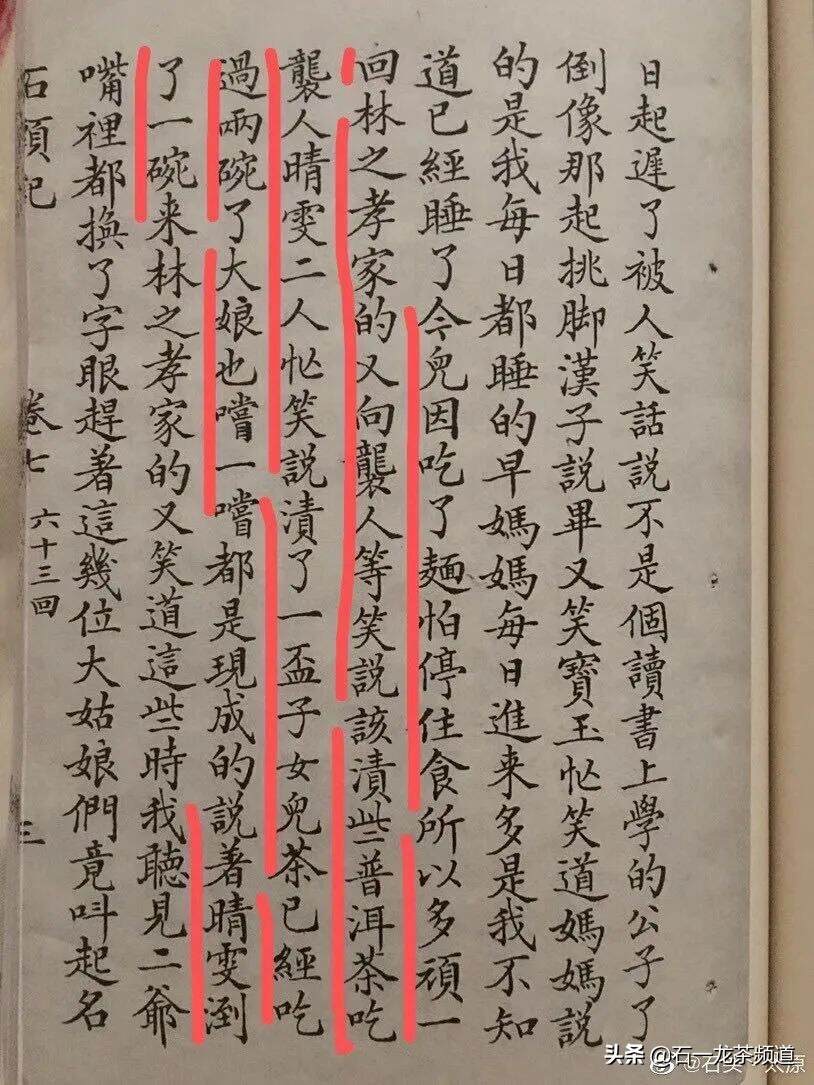 日起遲了被人笑話說不是個讀書上學的公子了
倒像那起挑脚漢子說畢又笑寶玉忙笑道媽媽說
的是我每日都睡的早媽媽每日進来多是我不知
道已經睡了今兒因吃了麵怕停住食所以多頑一
回林之孝家的又向襲人等笑說該漬些普洱茶吃
襲人晴雯二人忙笑說漬了一盃子女兒茶已經吃
過兩碗了大娘也嚐一嚐都是現成的說著晴雯倒
了一碗来林之孝家的又笑道這些時我聽見二爺
嘴裡都換了字眼趕著這幾位大姑娘們竟呌起名
石頭記 卷七 六十三回 三
头条 @石一龙茶频道